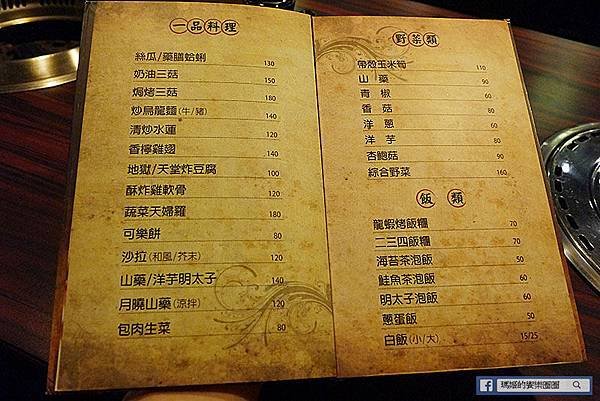 一品料理
絲瓜/藥膳蛤蜊 130
奶油三菇 150
焗烤三菇 180
炒烏龍麵(牛/豬) 140
清炒水蓮 120
香檸雞翅 140
地獄/天堂炸豆腐 100
酥炸雞軟骨 120
蔬菜天婦羅 180
可樂餅 80
沙拉(和風/芥末) 120
山藥/洋芋明太子 140
月曉山藥(涼拌) 120
包肉生菜 80
野菜類
帶殼玉米筍 110
山藥 90
青椒 60
香菇 80
洋蔥 60
洋芋 60
杏鮑菇 90
綜合野菜 160
飯類
龍蝦烤飯糰 70
二三四飯糰 70
海苔茶泡飯 50
鮭魚茶泡飯 60
明太子泡飯 60
蔥蛋飯 50
白飯(小/大) 15/25
瑪姬的饗樂圈圈